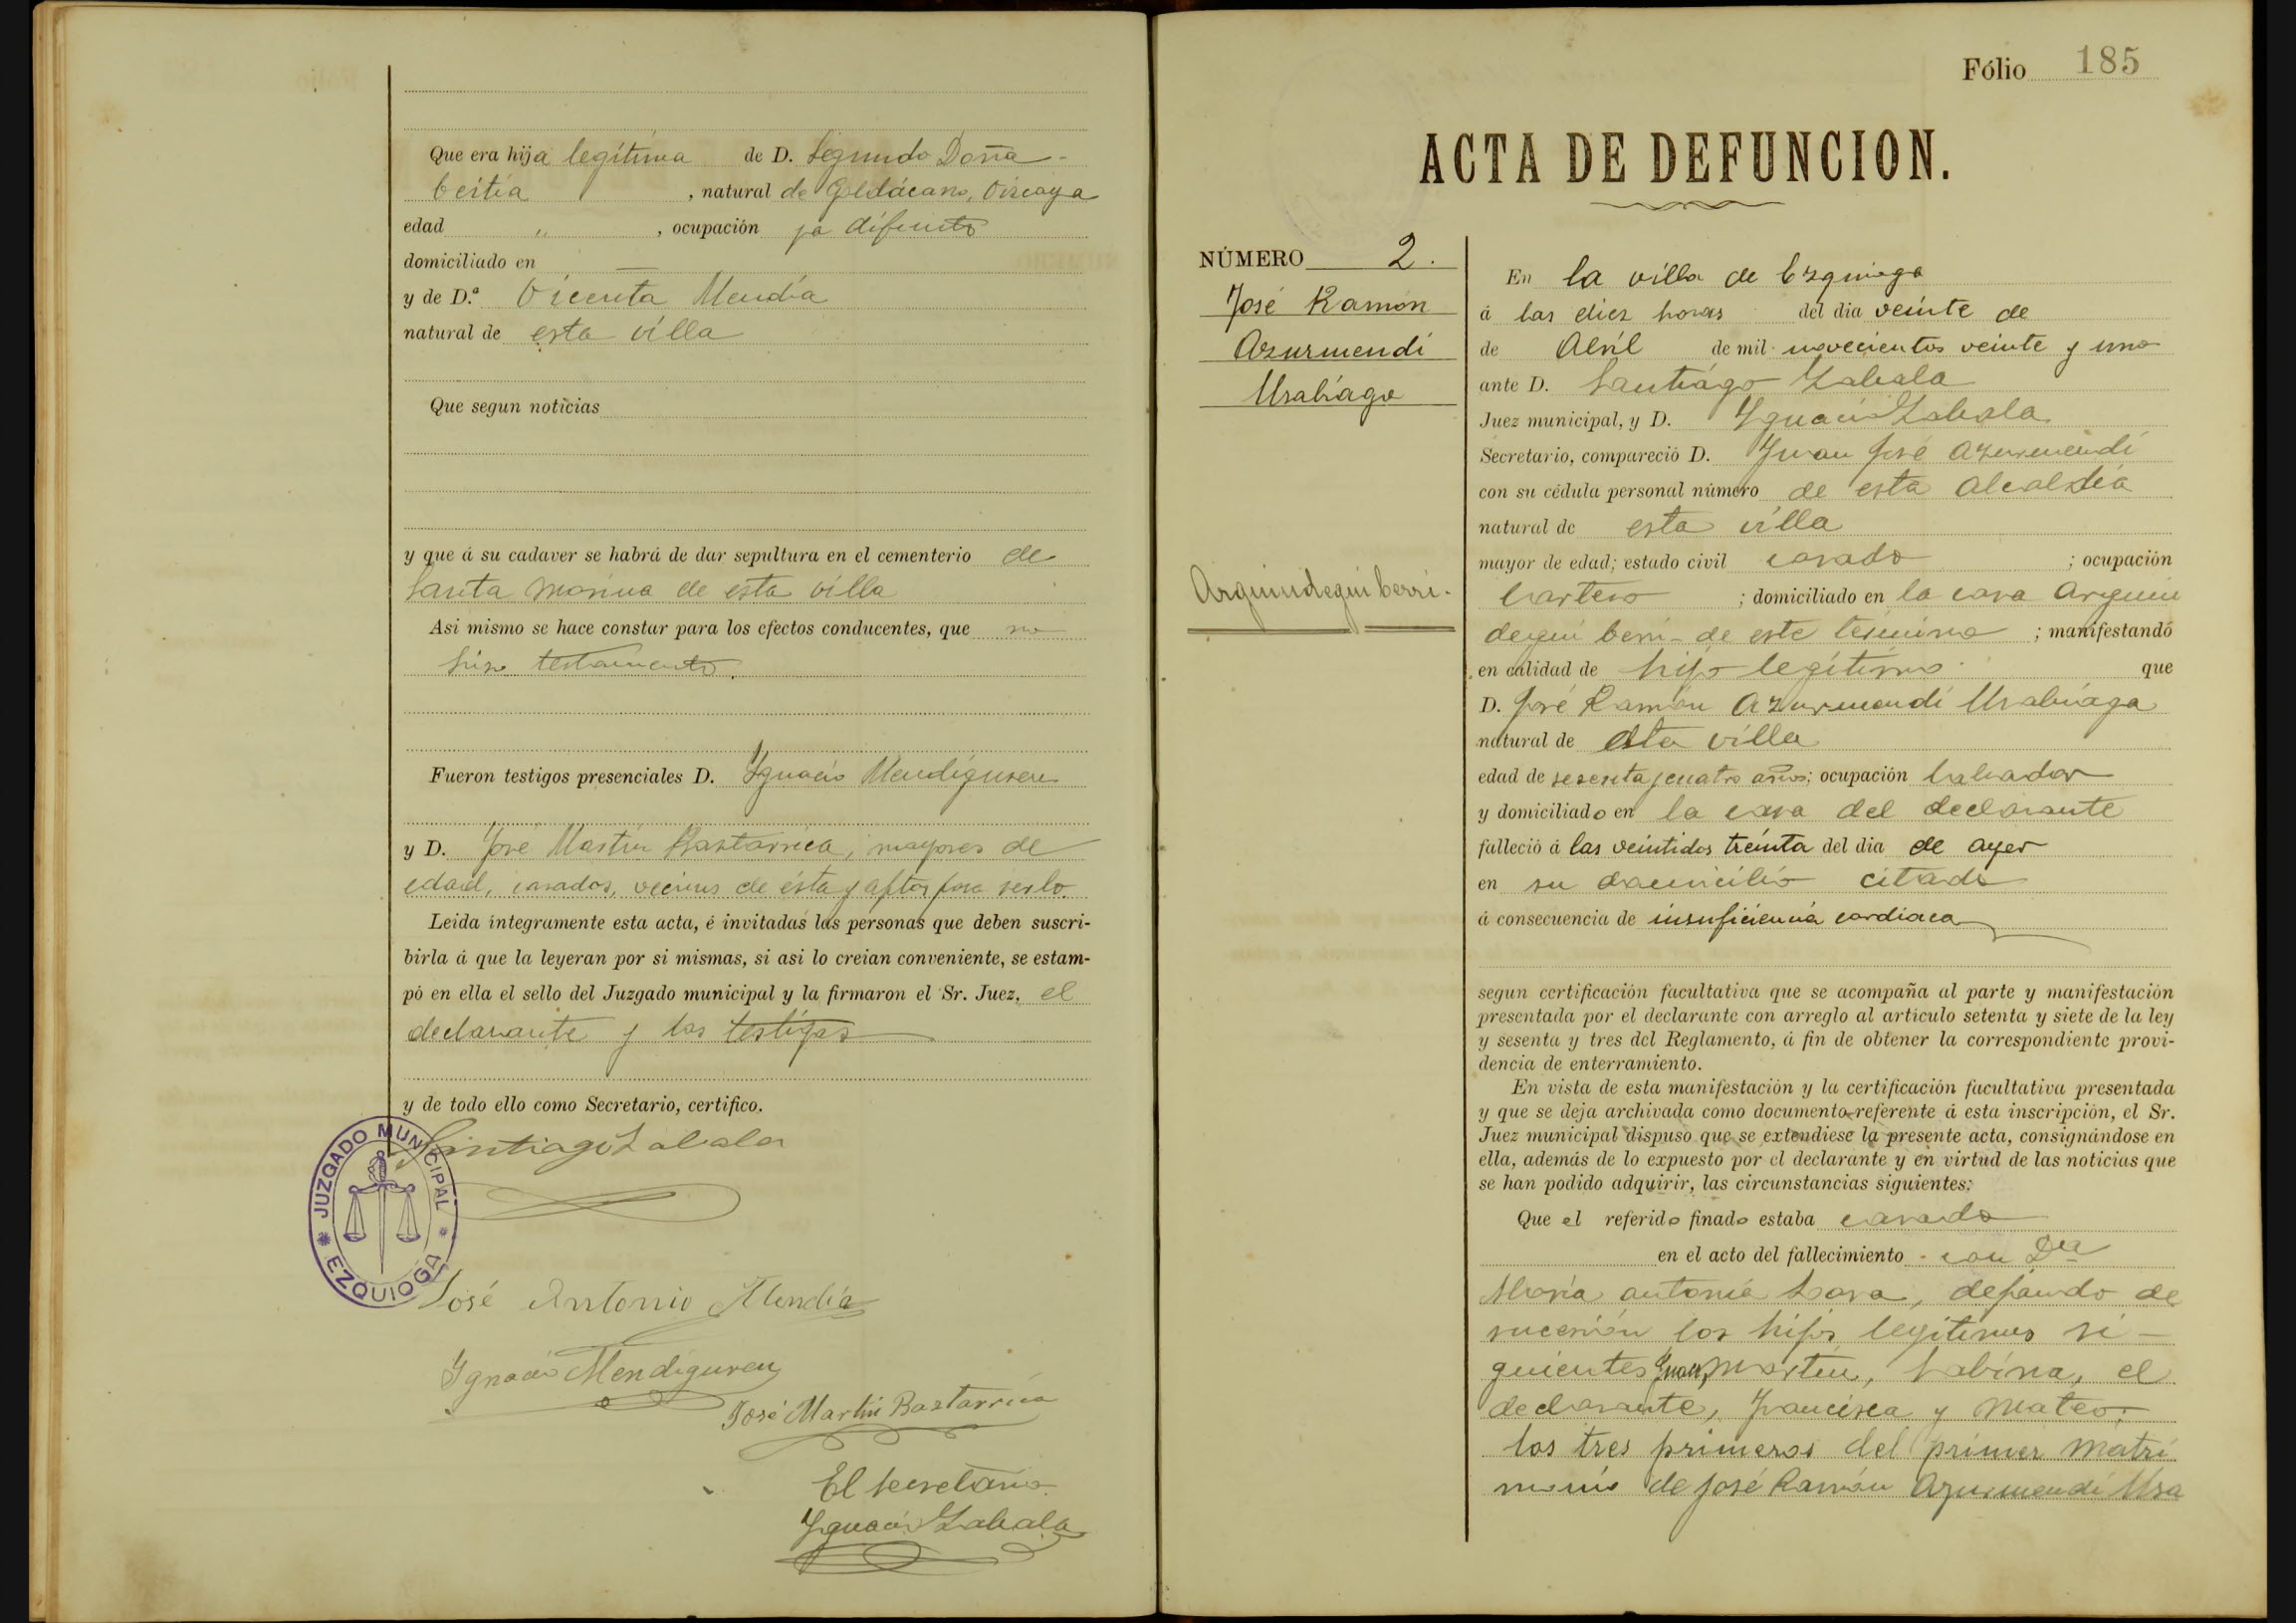 Que era hija legítima de D. Segundo Doña-
beitia , natural de Galdácano, Vizcaya
edad " , ocupación ya difunto
domiciliado en —
y de D.ª Vicenta Mendía
natural de esta villa
Que segun noticias
y que á su cadaver se habrá de dar sepultura en el cementerio de
Santa Marina de esta villa
Asi mismo se hace constar para los efectos conducentes, que no
hizo testamento.
Fueron testigos presenciales D. Ygnacio Mendiguren
y D. José Martín Bastarrica, mayores de
edad, casados, vecinos de ésta y aptos para serlo.
Leida integramente esta acta, é invitadas las personas que deben suscri-
birla á que la leyeran por si mismas, si asi lo creian conveniente, se estam-
pó en ella el sello del Juzgado municipal y la firmaron el Sr. Juez, el
declarante y los testigos
y de todo ello como Secretario, certifico.
Santiago Zabala
JUZGADO MUNICIPAL
* EZQUIOGA *
José Antonio Mendía
Ygnacio Mendiguren
José Martin Bastarrica
El Secretario
Ygnacio Zabala
Fólio 185
ACTA DE DEFUNCION.
NÚMERO 2.
José Ramón
Azurmendi
Usabiaga
Arguindegui berri.
En la villa de Ezquioga
á las diez horas del dia veinte de
de Abril de mil novecientos veinte y uno
ante D. Santiágo Zabala
Juez municipal, y D. Ygnacio Zabala
Secretario, compareció D. Juan José Azurmendi
con su cédula personal número de esta Alcaldía
natural de esta villa
mayor de edad; estado civil casado ; ocupación
Cartero ; domiciliado en la casa Arguin
degui berri- de este término ; manifestando
en calidad de hijo legítimo que
D. José Ramón Azurmendi Usabiaga
natural de esta villa
edad de sesenta y cuatro años; ocupación labrador
y domiciliado en la casa del declarante
falleció á las veintidos treinta del dia de ayer
en su domicilio citado
á consecuencia de insuficiencia cardiaca
segun certificación facultativa que se acompaña al parte y manifestación
presentada por el declarante con arreglo al artículo setenta y siete de la ley
y sesenta y tres del Reglamento, á fin de obtener la correspondiente provi-
dencia de enterramiento.
En vista de esta manifestación y la certificación facultativa presentada
y que se deja archivada como documento referente á esta inscripción, el Sr.
Juez municipal dispuso que se extendiese la presente acta, consignándose en
ella, además de lo expuesto por el declarante y en virtud de las noticias que
se han podido adquirir, las circunstancias siguientes:
Que el referido finado estaba casado
en el acto del fallecimiento con Dña
María Antonia , dejando de
sucesión los hijos legítimos si-
guientes Juan Martín, Sabina, el
declarante, Francisca y Mateo;
los tres primeros del primer matri
monio de José Ramón Azurmendi Usa